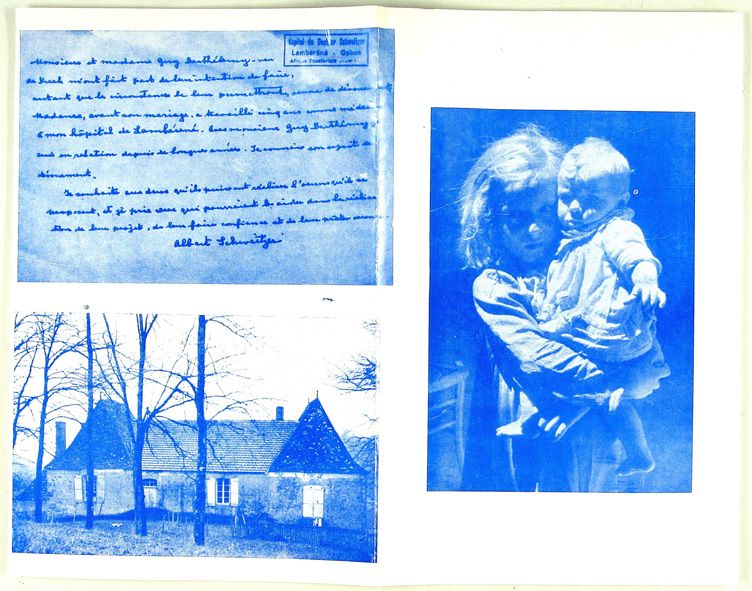 Hôpital du Docteur Schweitzer
Lambaréné - Gabon
Afrique Equatoriale
Monsieur et madame Guy Barthélemy
m'ont fait part de leur intention de faire,
autant que les circonstances le leur permettront, oeuvre de
Madame, avant son mariage, a travaillé cinq ans comme
à mon hôpital de Lambaréné. Avec monsieur Guy Barthélemy
suis en relation depuis de longues années. Je connais son esprit de
dévouement.
Je souhaite aux deux qu'ils puissent réaliser l'oeuvre qu'ils se
proposent, et je prie ceux qui pourraient les aider dans la
de leur projet, de leur faire confiance et de leur
Albert Schweitzer